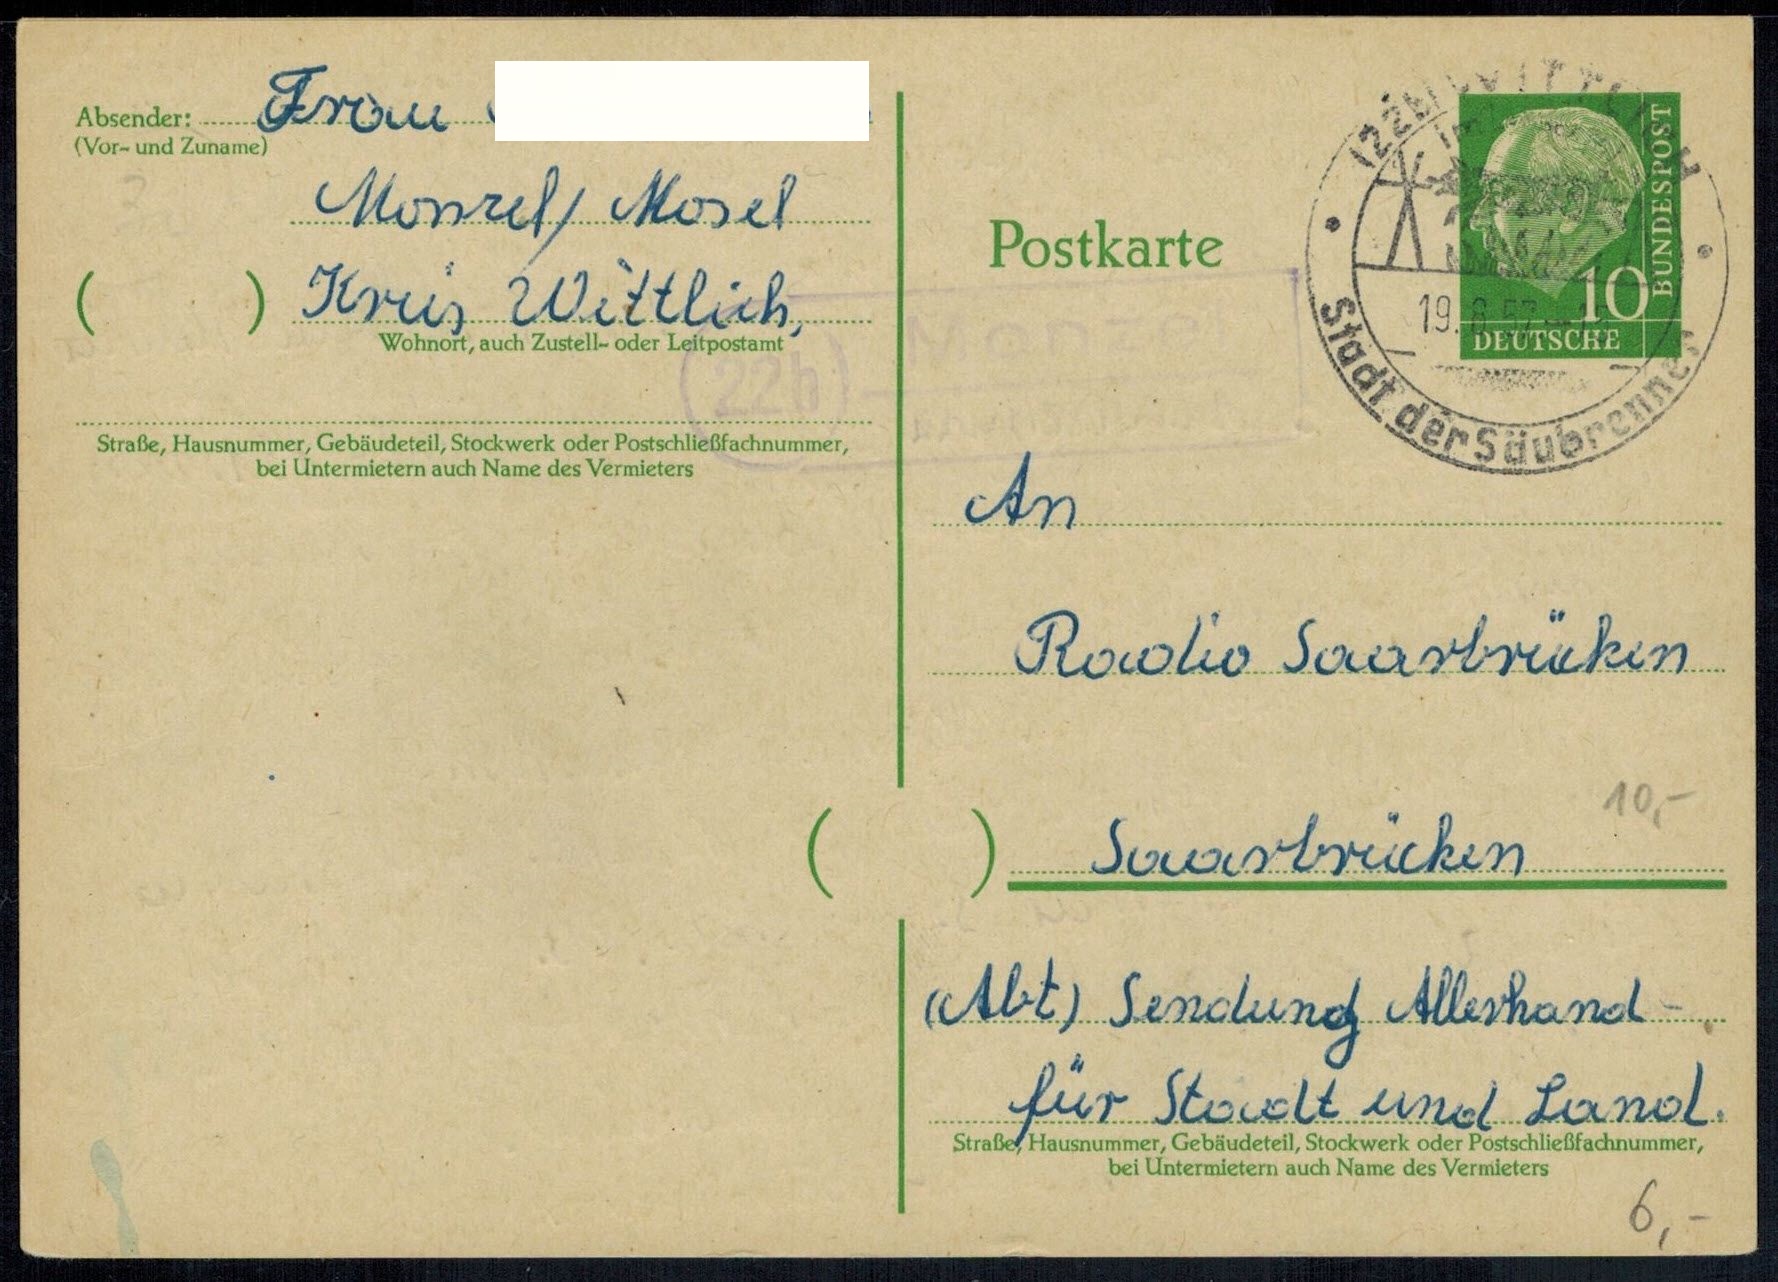 Absender: Frau
(Vor- und Zuname)
Monzel/Mosel
( ) Kreis Wittlich,
Wohnort, auch Zustell- oder Leitpostamt
Straße, Hausnummer, Gebäudeteil, Stockwerk oder Postschließfachnummer,
bei Untermietern auch Name des Vermieters
(22b)
Monzel
Postkarte
(22b) WITTLICH
19.8.57
Stadt der Säubrenner
10
DEUTSCHE
BUNDESPOST
An
Radio Saarbrücken
10,-
( ) Saarbrücken
(Abt) Sendung Allerhand -
für Stadt und Land.
Straße, Hausnummer, Gebäudeteil, Stockwerk oder Postschließfachnummer,
bei Untermietern auch Name des Vermieters
6,-